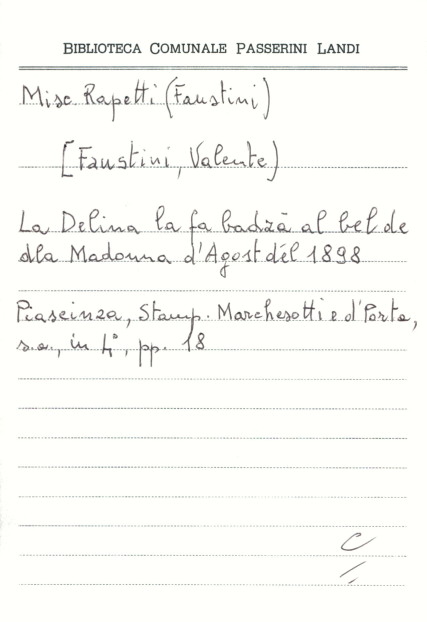 BIBLIOTECA COMUNALE PASSERINI LANDI
Misc. Rapetti (Faustini)
[Faustini, Valente)
La Delina la fa badzä al bel de
dla Madonna d'Agost dél 1898
Piaseinza, Stamp. Marchesotti e d'Porta,
s.a., in 4°, pp. 18